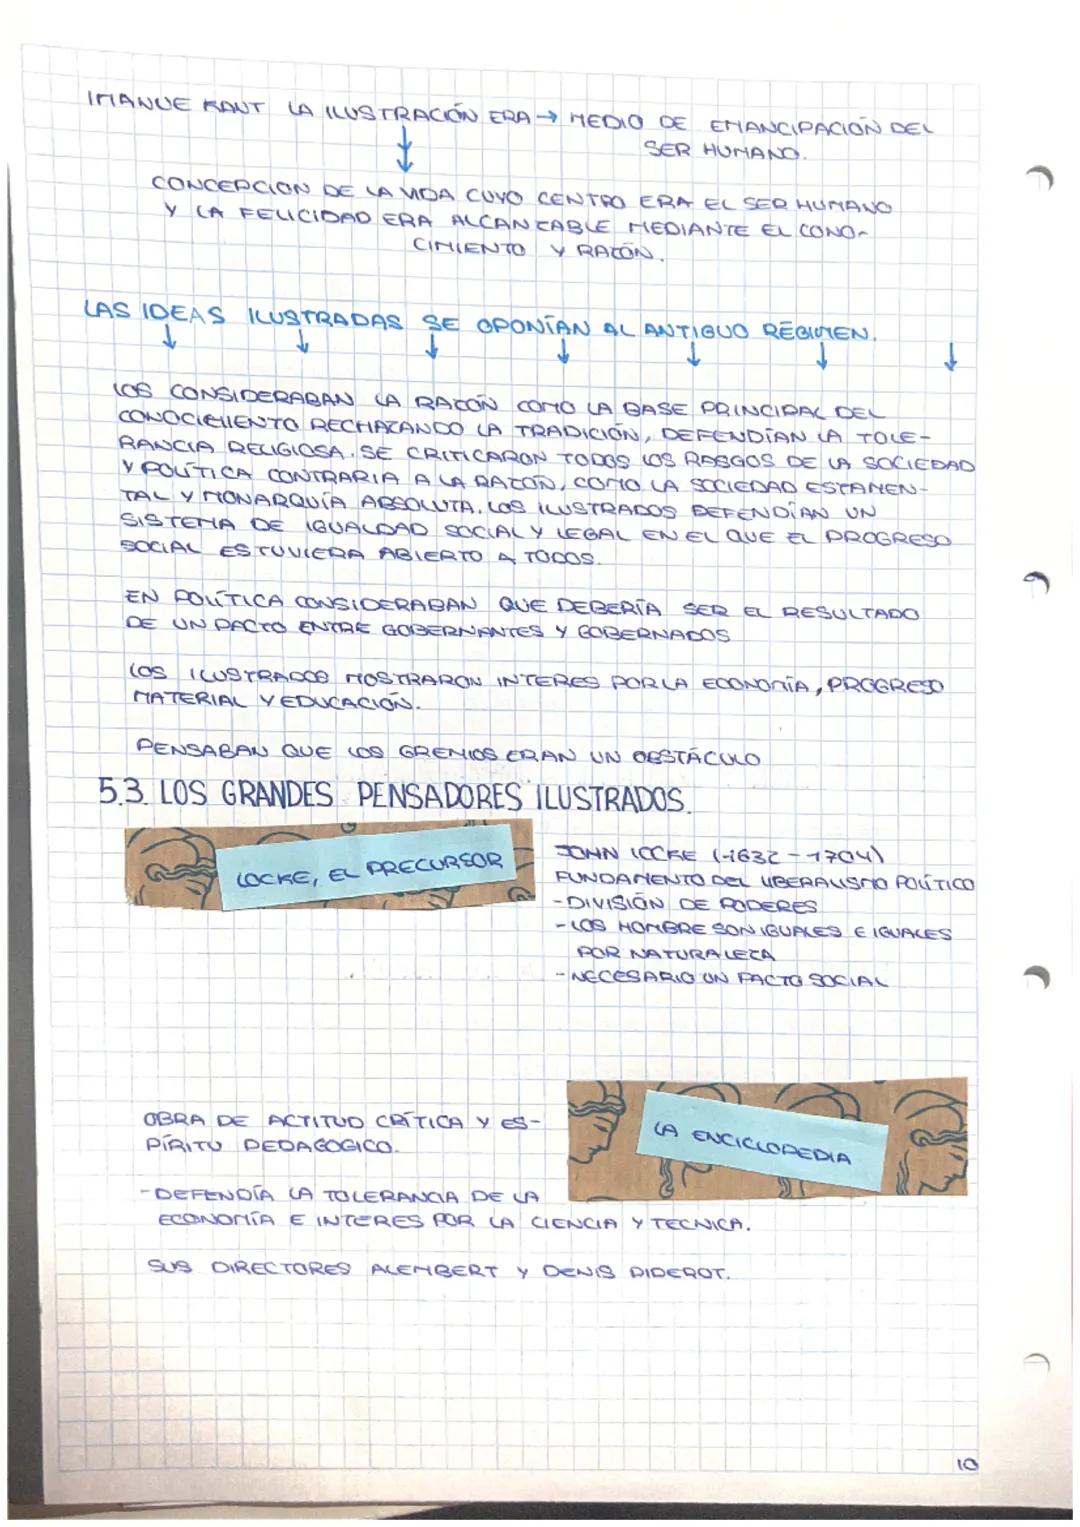 IMANUE KANT LA ILUSTRACIÓN ERA → MEDIO DE EMANCIPACIÓN DEL
SER HUMANO.
CONCEPCION DE LA VIDA CUYO CENTRO ERA EL SER HUMANO
Y LA FELICIDAD ERA ALCANZABLE MEDIANTE EL CONO-
CIMIENTO Y RAZÓN.
LAS IDEAS ILUSTRADAS SE OPONÍAN AL ANTIGUO RÉGIMEN.
LOS CONSIDERABAN LA RAZÓN COMO LA BASE PRINCIPAL DEL
CONOCIMIENTO RECHAZANDO LA TRADICIÓN, DEFENDÍAN LA TOLE-
RANCIA RELIGIOSA. SE CRITICARON TODOS LOS RASGOS DE LA SOCIEDAD
Y POLÍTICA CONTRARIA A LA RAZÓN, COMO LA SOCIEDAD ESTAMEN-
TAL Y MONARQUÍA ABSOLUTA. LOS ILUSTRADOS DEFENDÍAN UN
SISTEMA DE IGUALDAD SOCIAL Y LEGAL EN EL QUE EL PROGRESO
SOCIAL ESTUVIERA ABIERTO A TODOS.
EN POLÍTICA CONSIDERABAN QUE DEBERÍA SER EL RESULTADO
DE UN PACTO ENTRE GOBERNANTES Y GOBERNADOS
LOS ILUSTRADOS MOSTRARON INTERES POR LA ECONOMÍA, PROGRESO
MATERIAL Y EDUCACIÓN.
PENSABAN QUE LOS GREMIOS ERAN UN OBSTÁCULO
5.3. LOS GRANDES PENSADORES ILUSTRADOS.
LOCKE, EL PRECURSOR
JOHN LOCKE (1632 - 1704)
FUNDAMENTO DEL LIBERALISMO POLÍTICO
- DIVISIÓN DE PODERES
- LOS HOMBRE SON IGUALES E IGUALES
POR NATURALEZA
- NECESARIO UN PACTO SOCIAL
LA ENCICLOPEDIA
OBRA DE ACTITUD CRÍTICA Y ES-
PÍRITU PEDAGOGICO.
- DEFENDÍA LA TOLERANCIA DE LA
ECONOMÍA E INTERES POR LA CIENCIA Y TECNICA.
SUS DIRECTORES ALEMBERT Y DENIS DIDEROT.
10